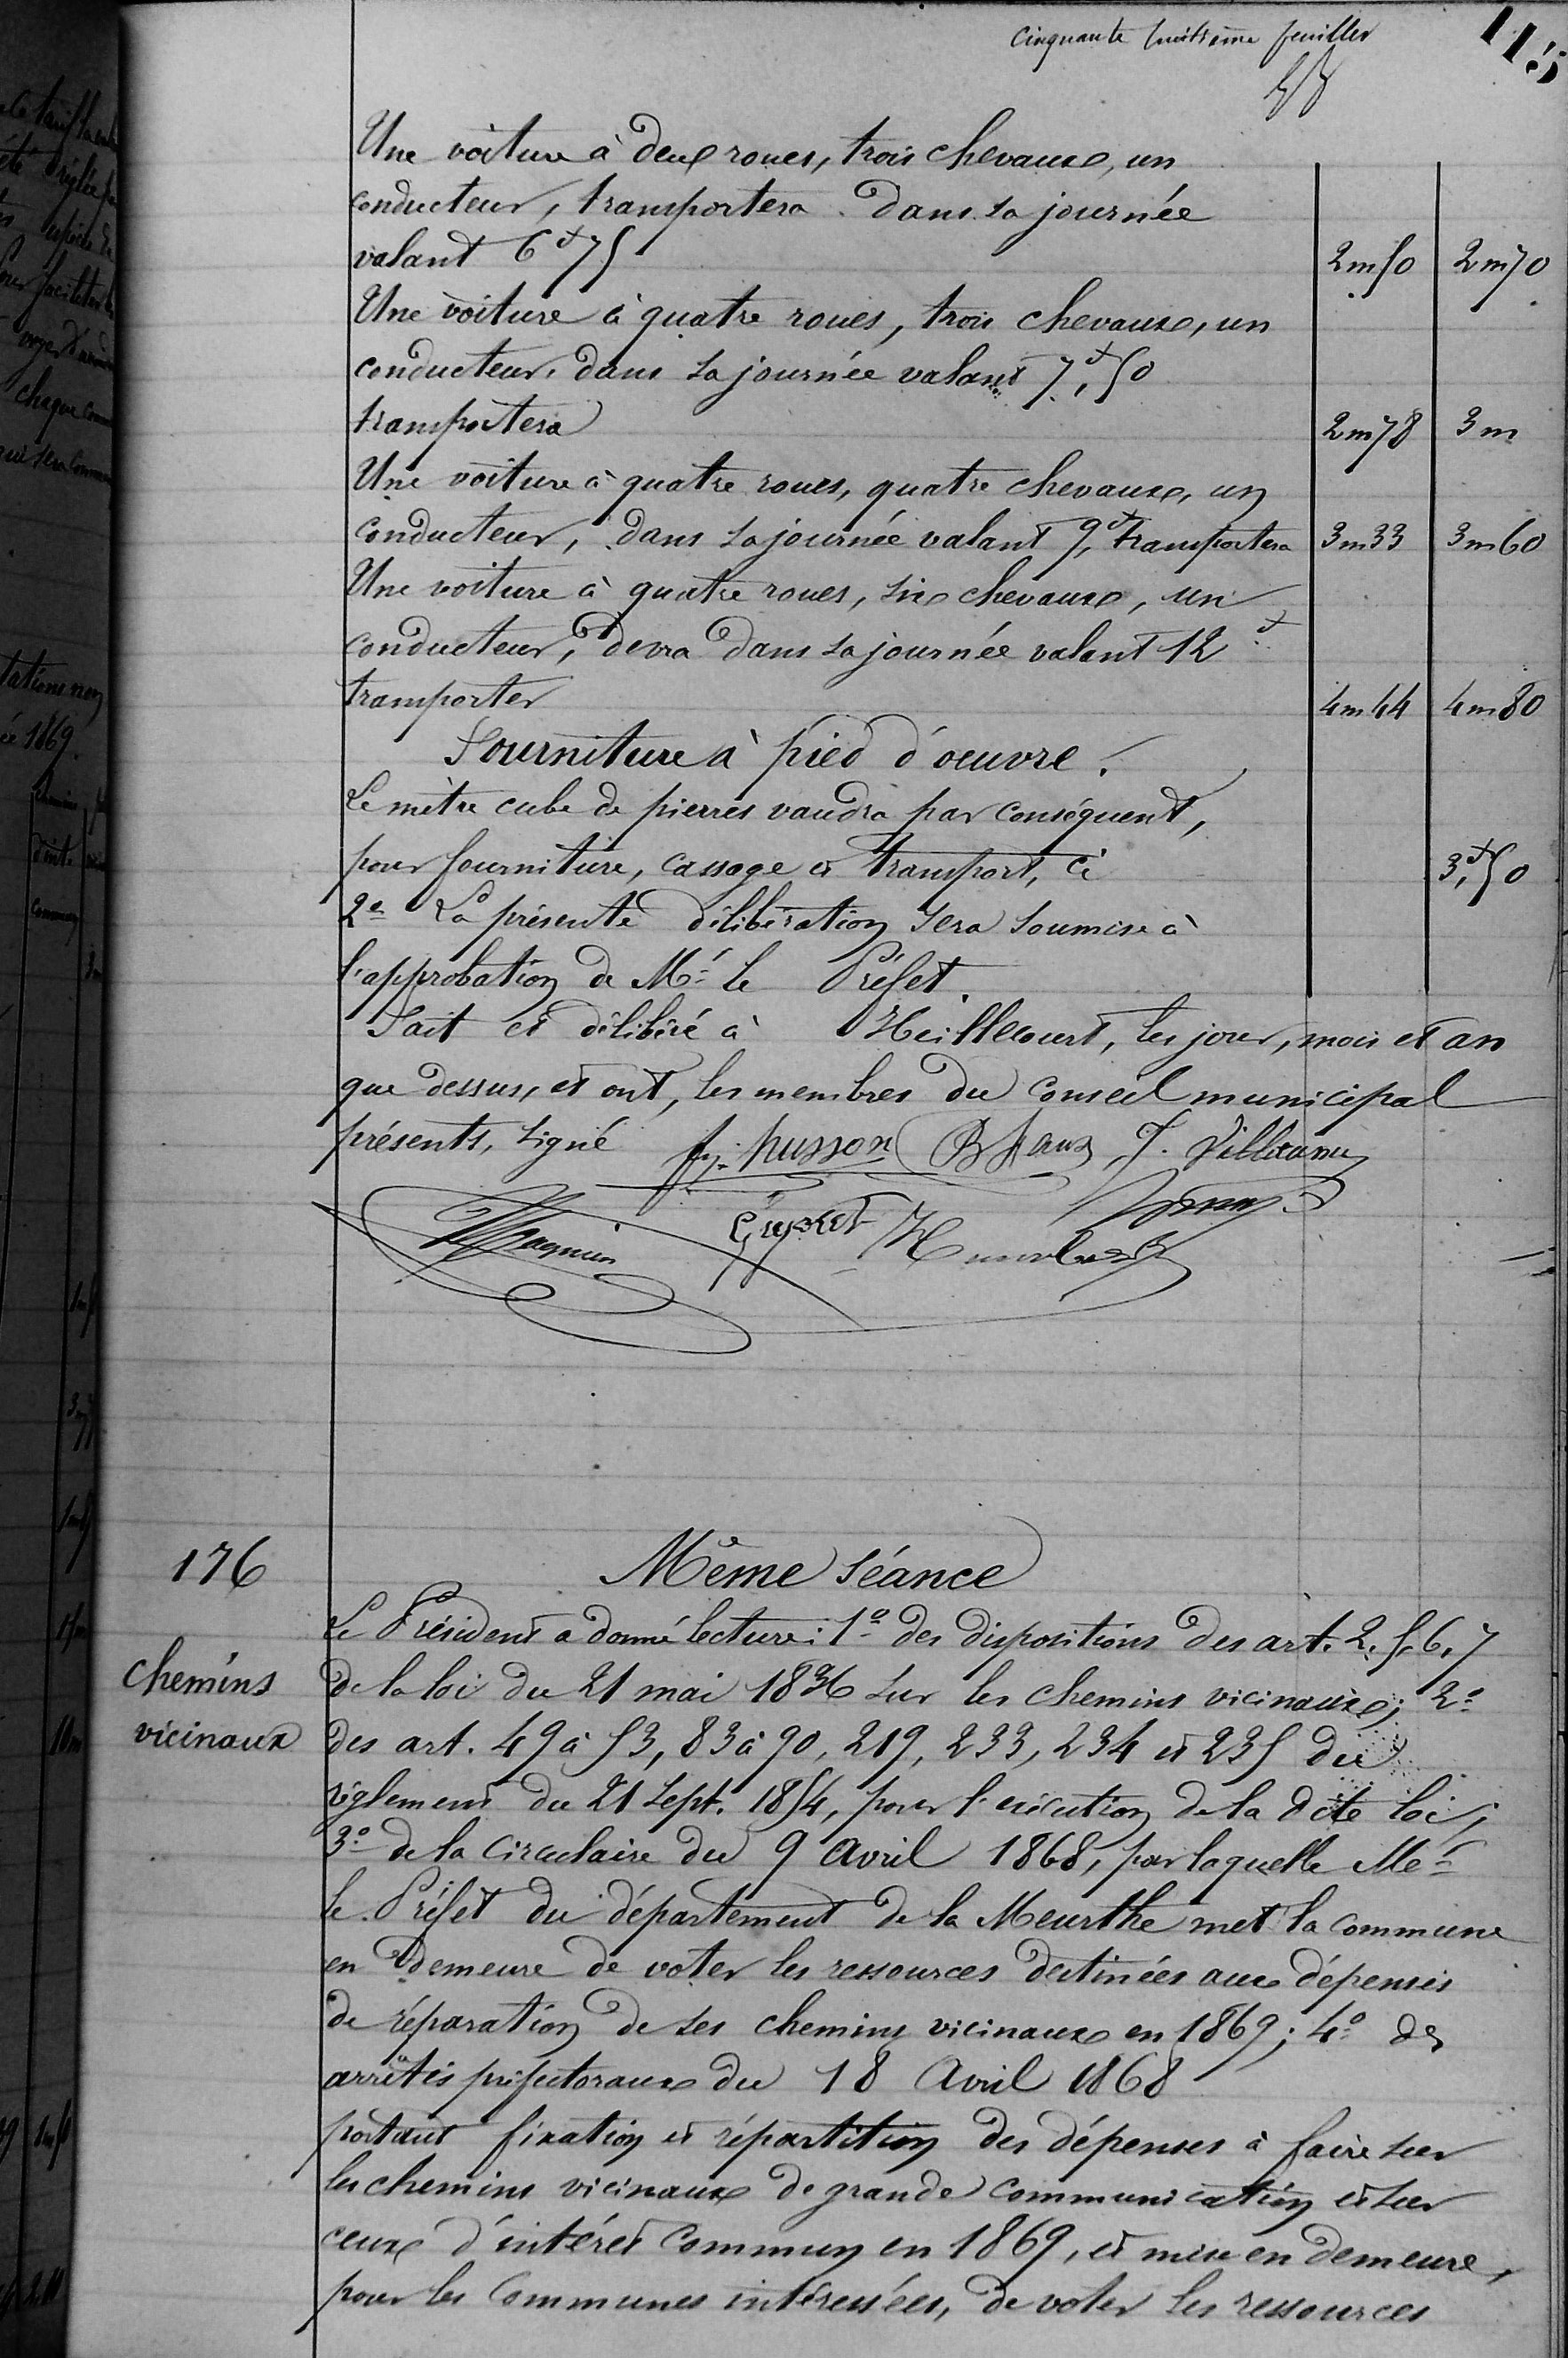 cinquante huitième feuillet
115
58
Une voiture à deux roues, trois chevaux, un
conducteur, transportera dans sa journée
valant 6f75 2m50 2m70
Une voiture à quatre roues, trois chevaux, un
conducteur, dans sa journée valant 7f,50
transportera 2m78 3m
Une voiture à quatre roues, quatre chevaux, un
conducteur, dans sa journée valant 9f, transportera 3m33 3m60
Une voiture à quatre roues, six chevaux, un
conducteur, devra dans sa journée valant 12f
transporter 4m44 4m80
Fourniture à pied d'oeuvre.
Le mètre cube de pierres vaudra par conséquent,
pour fourniture, cassage et transport, ci 3f,50
2e La présente délibération sera soumise à
l'approbation de Mr le Préfet.
Fait et délibéré à Heillecourt, les jour, mois et an
que dessus, et ont, les membres du Conseil municipal
présents, signé husson J. Villaume
Magnin Guyot Humbert
176
Même séance
Chemins
vicinaux
Le Président a donné lecture: 1o des dispositions des art. 2, 5, 6, 7
de la loi du 21 mai 1836 sur les chemins vicinaux; 2o
des art. 49 à 53, 83 à 90, 219, 233, 234 et 235 du
règlement du 21 Sept. 1854, pour l'exécution de la dite loi;
3o de la Circulaire du 9 Avril 1868, par laquelle Mr
le Préfet du département de la Meurthe met la commune
en demeure de voter les ressources destinées aux dépenses
de réparation de ses chemins vicinaux en 1869; 4o des
arrêtés préfectoraux du 18 Avril 1868
portant fixation et répartition des dépenses à faire sur
les chemins vicinaux de grande communication et sur
ceux d'intérêt Commun en 1869, et mise en demeure,
pour les Communes intéressées, de voter les ressources